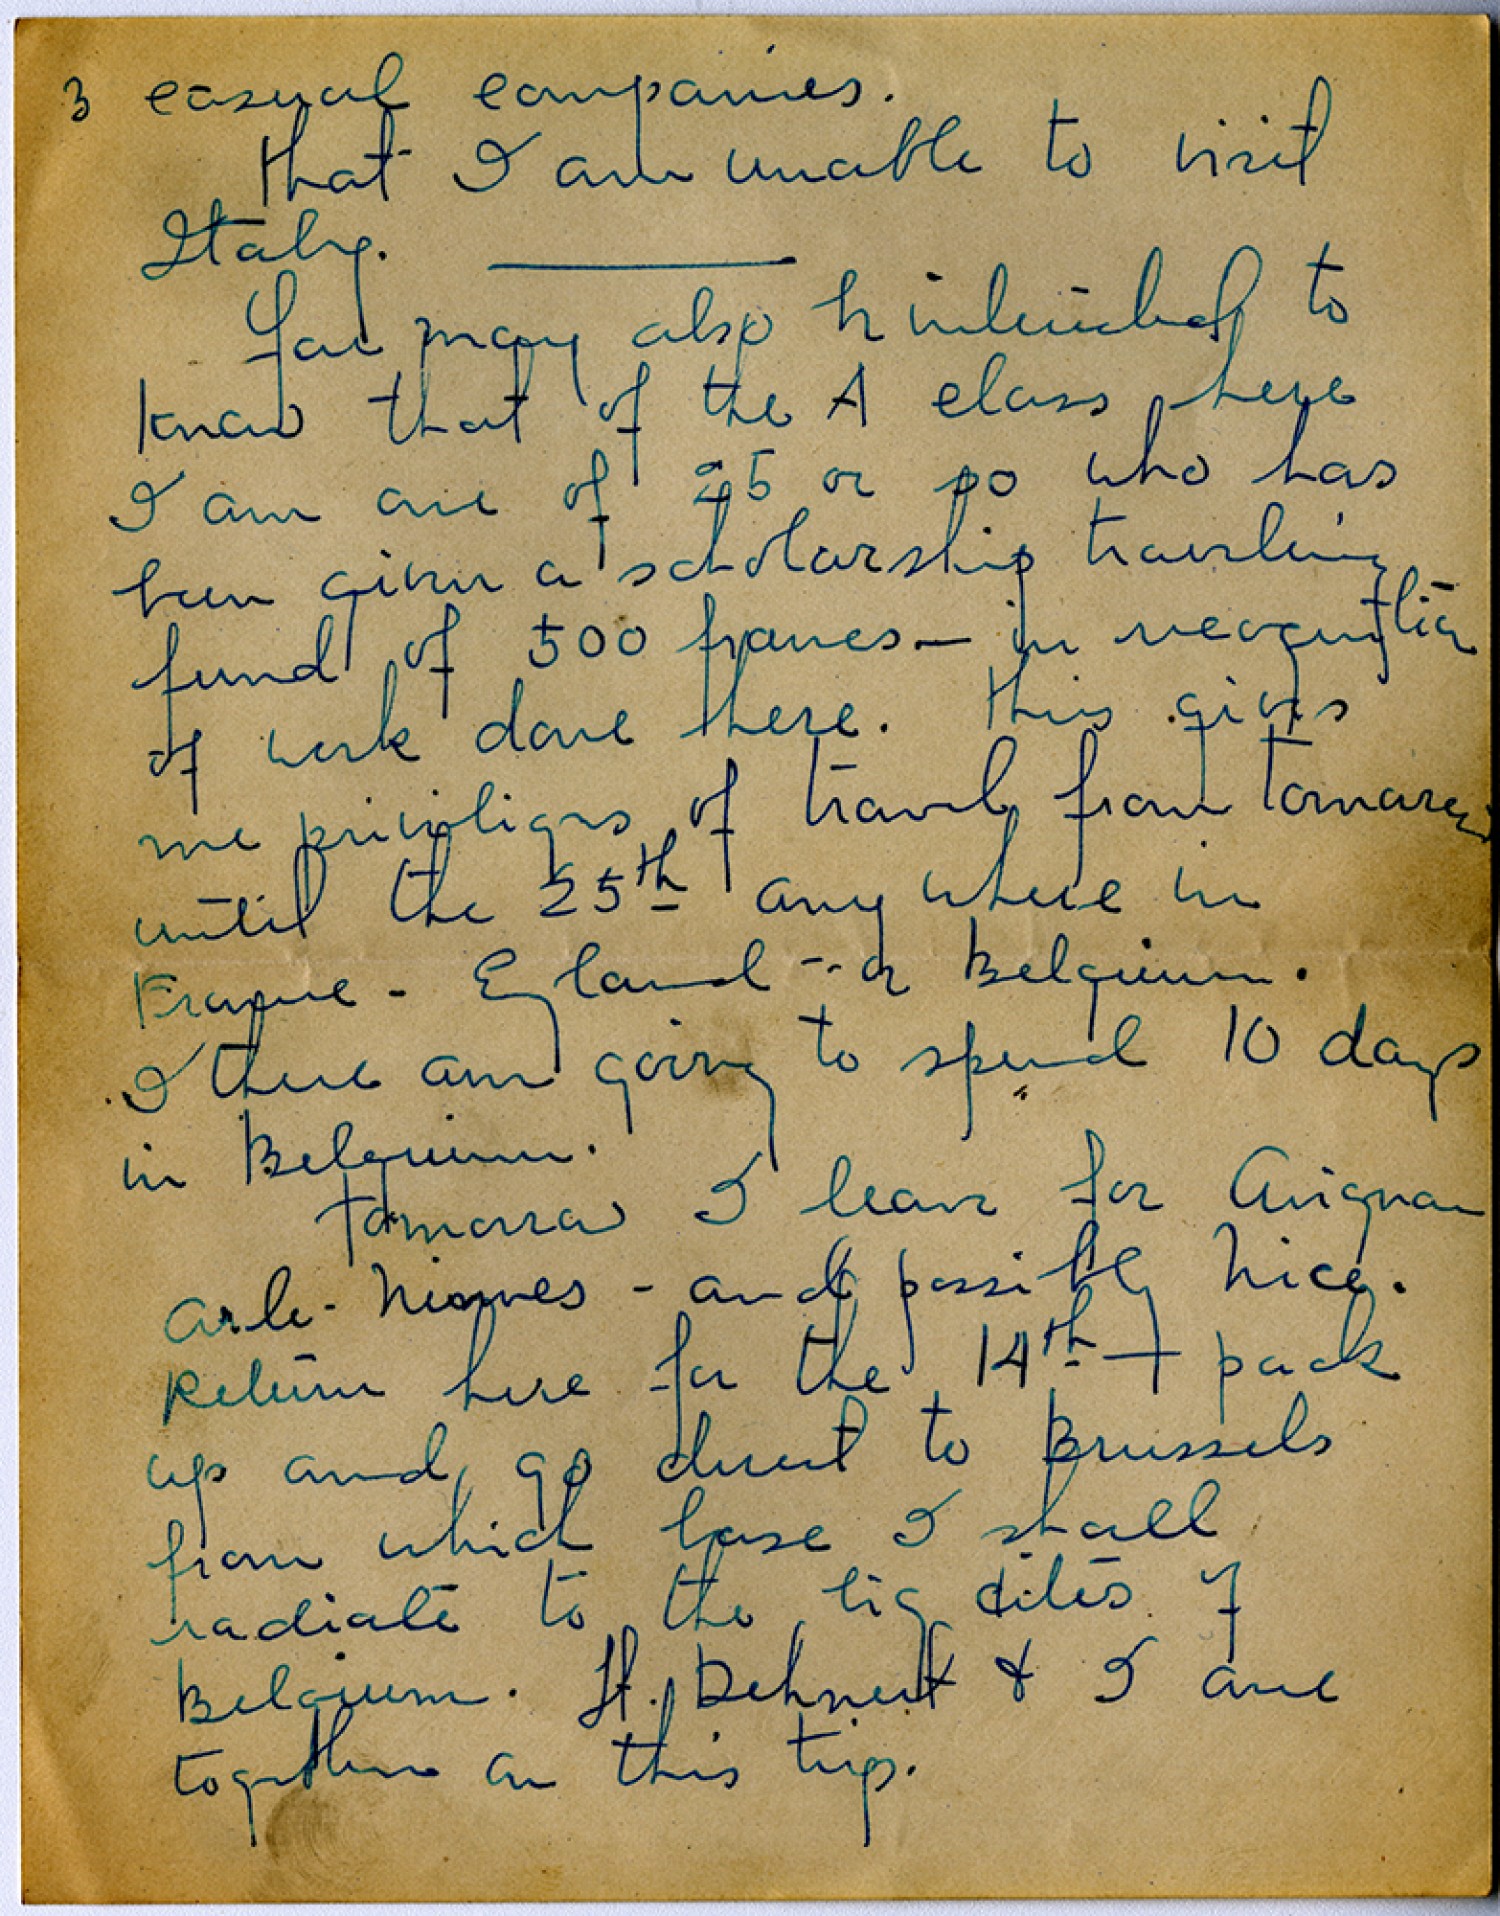 3 casual companies.
that I am unable to visit
Italy.
You may also be interested to
know that of the A class here
I am one of 25 or so who has
been given a scholarship traveling
fund of 500 francs — in recognition
of work done there. This gives
me privileges of travel from tomorrow
until the 25th any where in
France - England - or Belgium.
I there am going to spend 10 days
in Belgium.
Tomorrow I leave for Avignon
Arle - Nismes - and possibly Nice.
Return here for the 14th + pack
up and go direct to Brussels
from which base I shall
radiate to the big cities of
Belgium. Lt. Dehnert & I are
together on this trip.